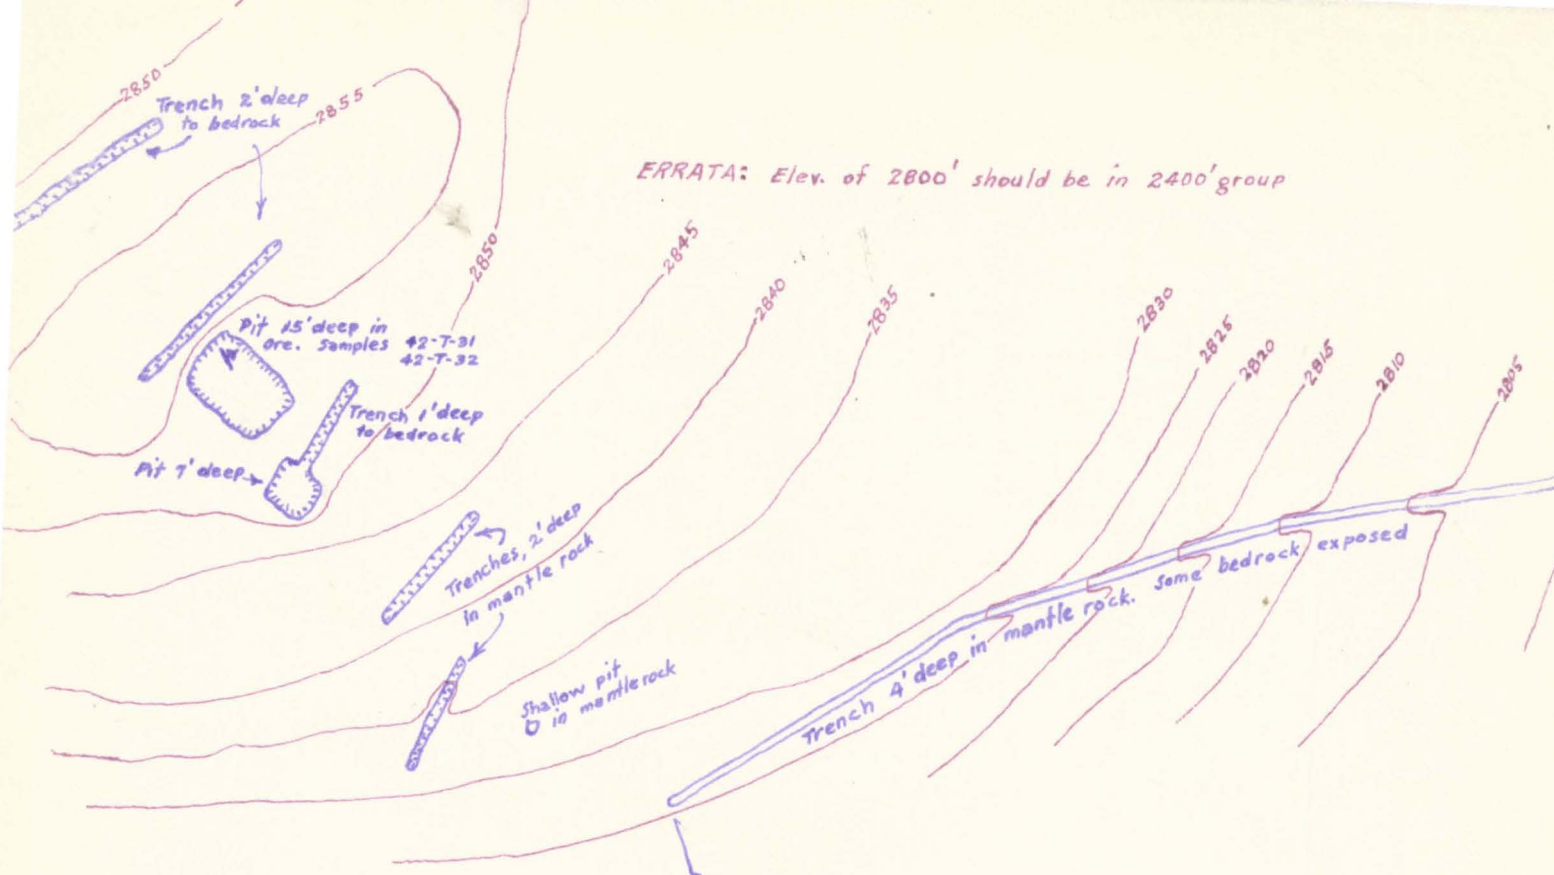 2850
Trench 2' deep
to bedrock
2855
ERRATA: Elev. of 2800' should be in 2400' group
2850
2845
2840
2835
2830
2825
2820
2815
2810
2805
Pit 15' deep in
ore. Samples 42-T-31
42-T-32
Trench 1' deep
to bedrock
Pit 7' deep
Trenches, 2' deep
in mantle rock
Shallow pit
in mantle rock
Trench 4' deep in mantle rock. Some bedrock exposed